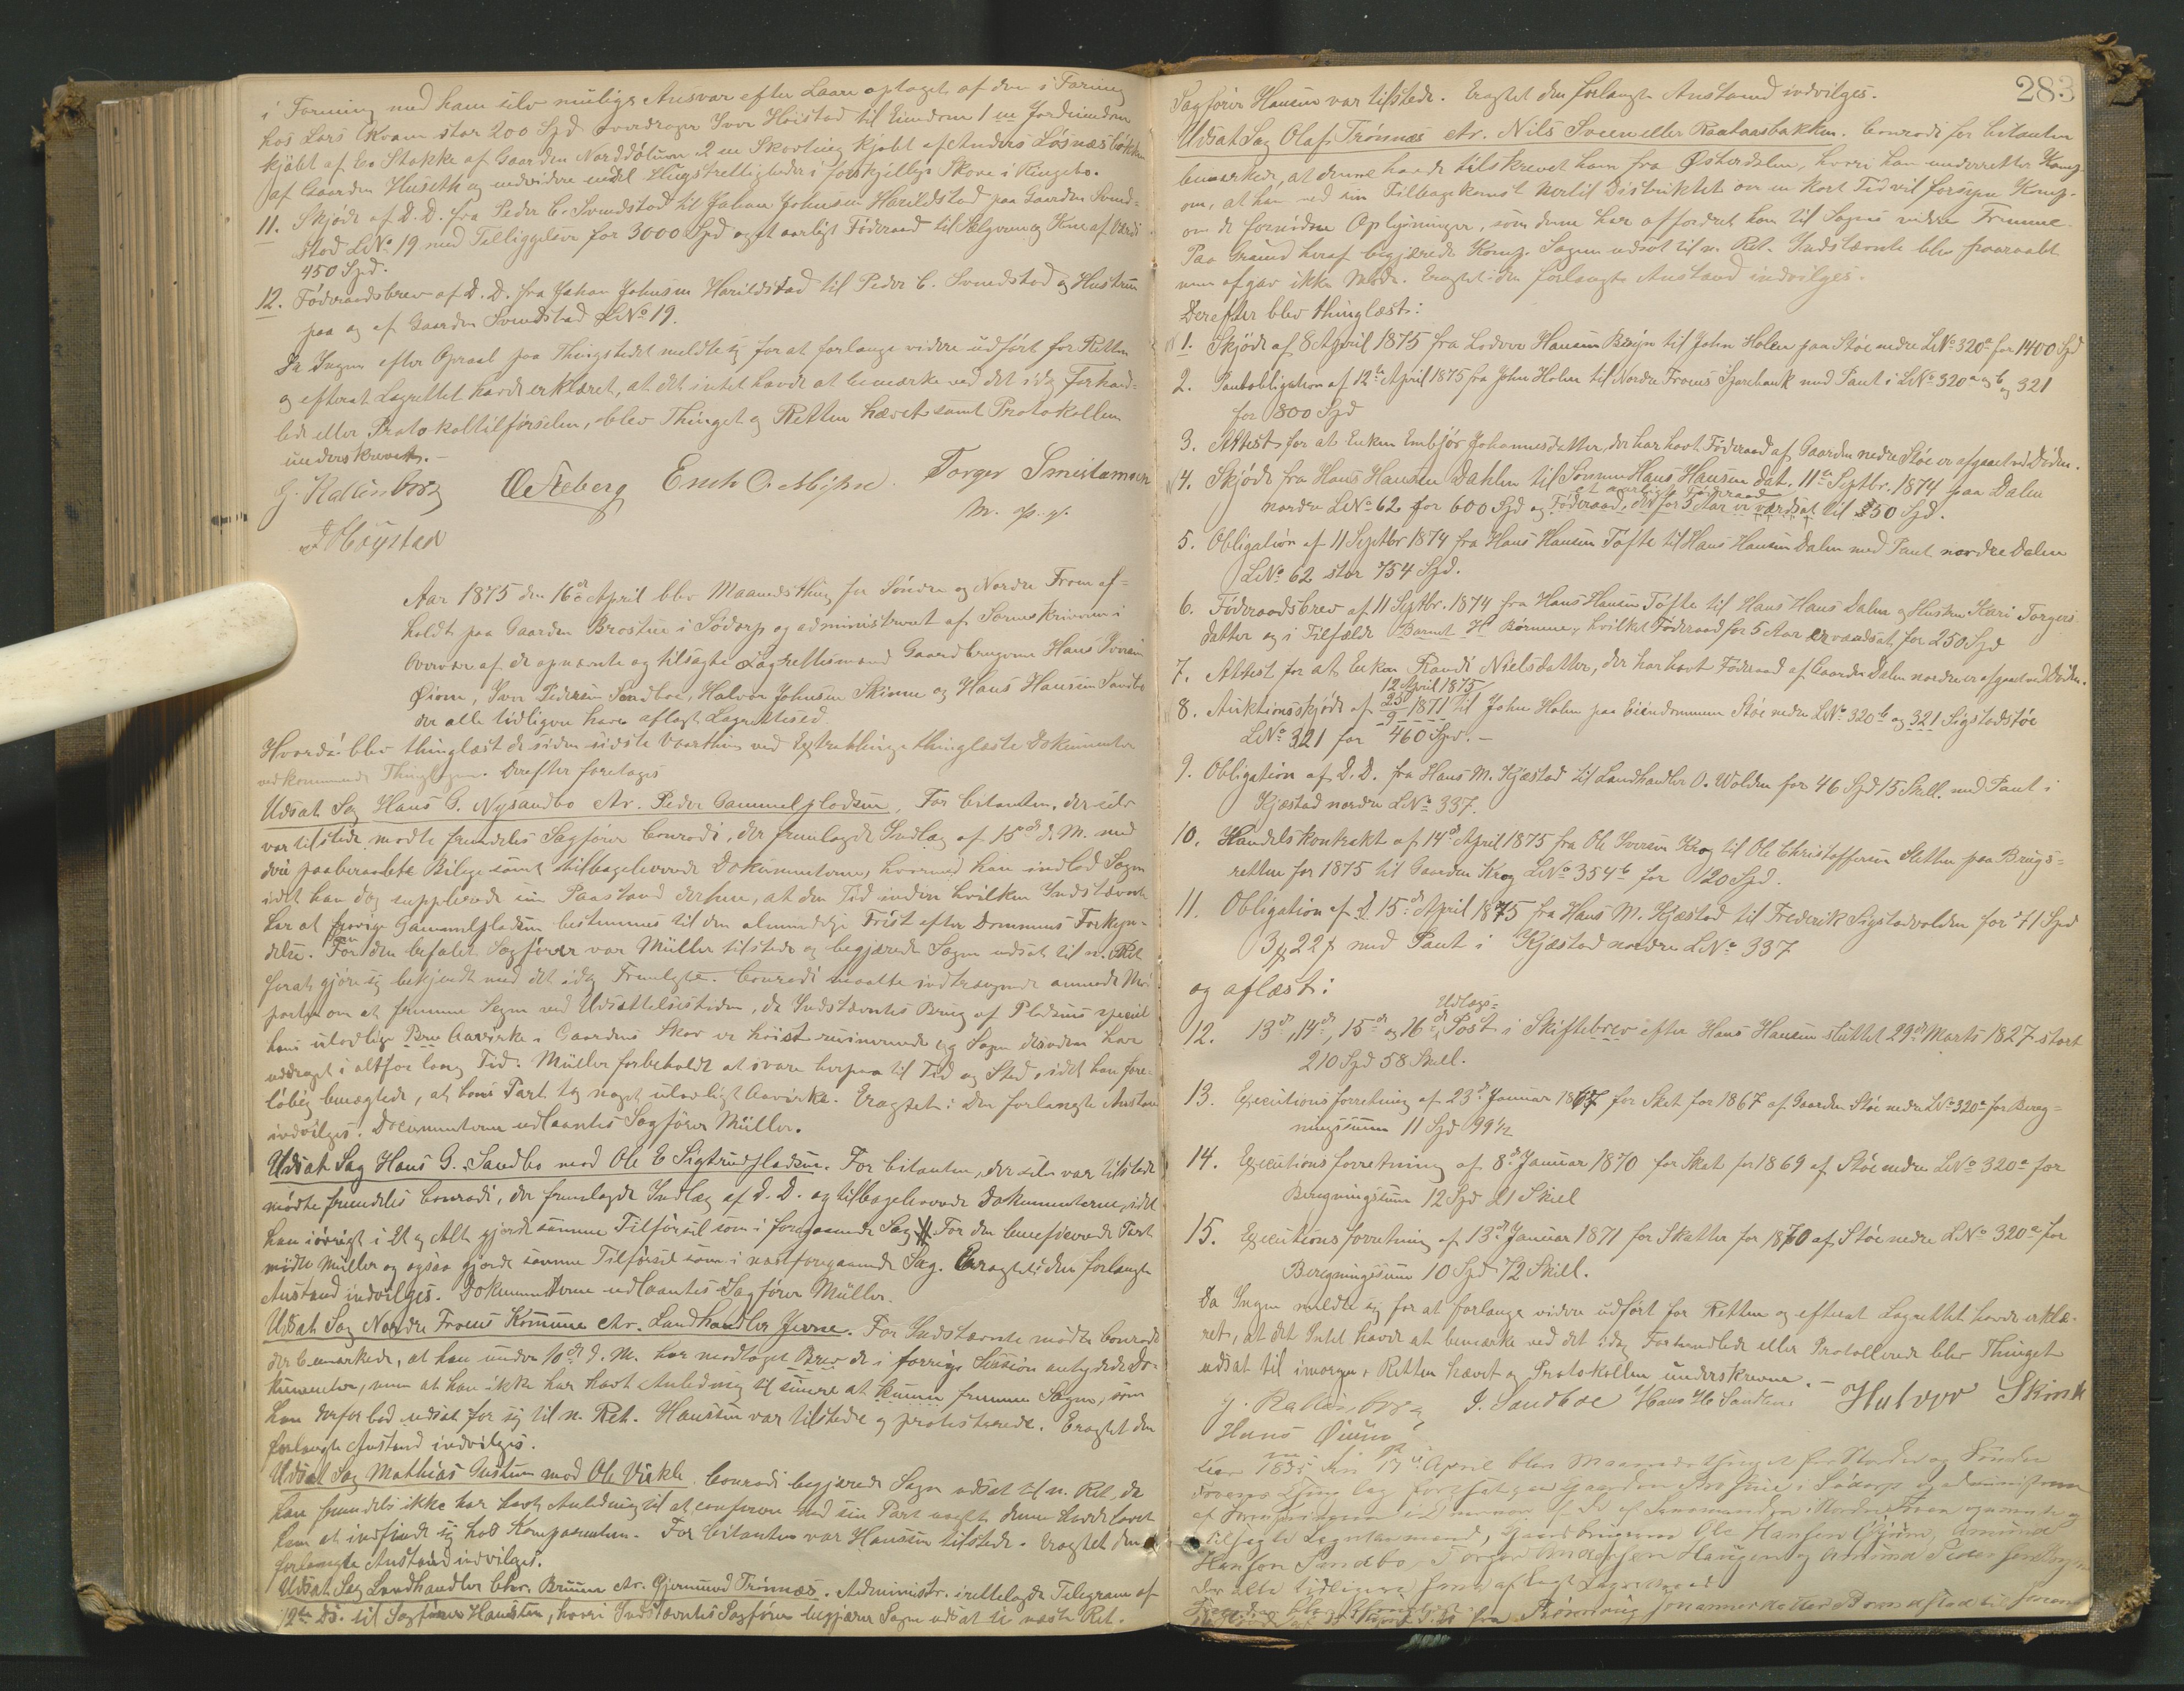 i Forening med ham selv mulige Ansvar efter Laan optaget af den i Foring
hos Lars Kvam stor 200 Spd overdrager Iver Høistad til Eiendom 1 en Jordeiendom
kjøbt af Stokke af Gaarden Norddölum 2 en Skovteig kjøbt af Anders Løsnæsbakken
af Gaarden Huseth og endvidere endel Hugstrettigheder i forskjellige Skove i Ringebo.
11. Skjøde af D. D. fra Peder C. Svendstad til Johan Johnsen Harildstad paa Gaarden Svend-
stad LNo 19 med Tilliggelser for 3000 Spd og et aarligt Föderaad til Sælgeren og Kone af Værdi
450 Spd.
12. Föderaadsbrev af D. D. fra Johan Johnsen Harildstad til Peder C. Svendstad og Hustru
paa og af Gaarden Svendstad LNo 19.
Da Ingen efter Opraab paa Thingstedet meldte sig for at forlange videre udført for Retten
og efterat Lagrettet havde erklæret, at det intet havde at bemærke ved det idag Forhand-
lede eller Protokoltilførselen, blev Thinget og Retten hævet samt Protokollen
underskrevet. —
G. Rallinborg O Feberg Torger
M. p. p.
I Høystad
Aar 1875 den 16de April blev Maanedsthing for Søndre og Nordre Fron af-
holdt paa Gaarden Brostue i Sødorp og administreret af Sorenskriveren i
Overvær af de opnævnte og tilsagte Lagrettesmænd Gaardbrugerne Hans Iversen
Øium, Iver Pedersen Sandboe, Halvor Johnsen Skinne og Hans Hansen Sandbo
der alle tidligere have aflagt Lagrettesed.
Hvorda blev thinglæst de siden sidste Vaarthing ved Extrathinge thinglæste Dokumenter
vedkommende Thinglagen. Derefter foretoges
Udsat Sag Hans G. Nysandbo ctr. Peder Gammelpladsen. For Citanten, der selv
var tilstede, mødte fremdeles Sagfører Conradi, der fremlagde Indlæg af 15de d. M. med
deri paaberaabte Bilage samt tilbageleverede Dokumenterne, hvormed han indlod Sagen
idet han dog supplerede sin Paastand derhen, at den Tid inden hvilken Indstævnte
har at fravige Gammelpladsen bestemmes til den almindelige Frist efter Dommens Forkyn-
delse. For den befalet Sagfører var Müller tilstede og begjærede Sagen udsat til n. Ret
forat gjøre sig bekjendt med det idag Fremlagte. Conradi maatte indtrængende anmode Mod-
parten om at fremme Sagen ved Udsættelsestiden, da Indstævntes Brug af Pladsens specielt
hans ulovlige Brev Aavirke i Gaardens Skov er høist ruinerende og Sagen desuden har
uddraget i altfor lang Tid. Müller forbeholdt at svare herpaa til Tid og Sted, idet han fore-
løbig benægtede, at hans Part tog noget ulovligt Aavirke. Eragtet: Den forlangte Anstand
indvilges. Documenterne udlaantes Sagfører Müller.
Udsat Sag Hans G. Sandbo mod Ole E Sigtrudpladsen. For Citanten, der selv var tilstede
mødte fremdeles Conradi, der fremlagde Indlæg af D. D. og tilbageleverede Dokumenterne, idet
han iøvrigt i Et og Alt gjorde samme Tilførsel som i foregaaende Sag. For den beneficerede Part
mødte Müller og ogsaa gjorde samme Tilførsel som i næstforegaaende Sag. Eragtet: den forlangte
Anstand indvilges. Dokumenterne udlaantes Sagfører Müller.
Udsat Sag Nordre Frons Kommune ctr. Landhandler Jevne. For Indstævnte mødte Conradi
der bemærkede, at han under 10de d. M. har modtaget Brev de i forrige Session antydede Do-
kumenter, men at han ikke har havt Anledning til senere at kunne fremme Sagen, som
han derfor bad udsat for sig til n. Ret. Hansen var tilstede og protesterede. Eragtet den
forlangte Anstand indvilges.
Udsat Sag Mathias Gustum mod Ole Virkle. Conradi begjærede Sagen udsat til n. Ret, da
han fremdeles ikke har havt Anledning til at conferere med sin Part uagtet denne havde lovet
ham at indfinde sig hos Komparenten. For Citanten var Hansen tilstede. Eragtet den
forlangte Anstand indvilges.
Udsat Sag Landhandler Chr. Bruun ctr. Gjermund Trönnæs. Administr. irettelagde Telegram af
12te ds. til Sagfører Hansen, hvori Indstævntes Sagfører begjærer Sagen udsat til næste Ret.
283
Sagfører Hansen var tilstede. Eragtet den forlangte Anstand indvilges.
Udsat Sag Olaf Trönnæs ctr. Nils Sveen eller Raataasbakken. Conradi for Citanten
bemærkede, at denne havde tilskrevet ham fra Østerdalen, hvori han underretter Komp.
om, at han ved sin Tilbagekomst hertil Distriktet om en kort Tid vil forsyne Komp.
om de fornødne Oplysninger, som denne har affordret ham til Sagens videre Fremme.
Paa Grund heraf begjærede Komp. Sagen udsat til n. Ret. Indstævnte blev paaraabt
men afgav ikke Møde. Eragtet: den forlangte Anstand indvilges.
Derefter blev thinglæst:
1. Skjøde af 8 April 1875 fra Lodver Hansen Bryn til John Holen paa Støe nedre LNo 320a for 1400 Spd
2. Pantobligation af 12te April 1875 fra John Holen til Nordre Frons Sparebank med Pant i LNo 320a og b og 321
for 800 Spd
3. Attest for at Enken Embjør Johannesdatter, der har havt Föderaad af Gaarden nedre Støe er afgaaet ved Døden.
4. Skjøde fra Hans Hansen Dahlen til Sønnen Hans Hansen dat. 11te Septbr. 1874 paa Dalen
et aarligt Föderaad
nordre LNo 62 for 600 Spd og Föderaad, der for 5 Aar er værdsat til 250 Spd.
5. Obligation af 11 Septbr 1874 fra Hans Hansen Tofte til Hans Hansen Dalen med Pant nordre Dalen
LNo 62 stor 754 Spd.
6. Föderaadsbrev af 11 Septbr. 1874 fra Hans Hansen Tofte til Hans Hans Dalen og Hustru Kari Torgers-
datter og i Tilfælde Barnet Børnene, hvilket Föderaad for 5 Aar er værdsat for 250 Spd
7. Attest for at Enken Randi Nielsdatter, der har havt Föderaad af Gaarden Dalen nordre er afgaaet ved Døden.
12 April 1875
8. Auktionsskjøde af 25/9 1871 til John Holen paa Eiendommen Støe nedre LNo 320b og 321 Sigstadstøe
LNo 321 for 460 Spd. —
9. Obligation af D. D. fra Hans M. Kjæstad til Landhandler O. Wolden for 46 Spd 15 Skill. med Pant i
Kjæstad nordre LNo 337.
10. Handelskontrakt af 14de April 1875 fra Ole Iversen Krog til Ole Christoffersen Sletten paa Brugs-
retten for 1875 til Gaarden Krog LNo 354b for 120 Spd.
11. Obligation af 15de April 1875 fra Hans M. Kjæstad til Frederik Sigstadvolden for 71 Spd
3 22 med Pant i Kjæstad nordre LNo 337
og aflæst:
Udlægs-
12. 13de, 14de, 15de og 16de Post i Skiftebrev efter Hans Hansen sluttet 29de Marts 1827 stort
210 Spd 58 Skill.
13. Executionsforretning af 23de Januar 1867 for Skat for 1867 af Gaarden Støe nedre LNo 320a for Bereg-
ningssum 11 Spd 99½
14. Executionsforretning af 8de Januar 1870 for Skat for 1869 af Støe nedre LNo 320a for
Beregningssum 12 Spd 21 Skill
15. Executionsforretning af 13de Januar 1871 for Skatter for 1870 af Støe nedre LNo 320a for
Beregningssum 10 Spd 72 Skill.
Da Ingen meldte sig for at forlange videre udført for Retten og efterat Lagrettet havde erklæ-
ret, at det Intet havde at bemærke ved det idag Forhandlede eller Protollerede blev Thinget
udsat til imorgen, Retten hævet og Protokollen underskreven. —
G. Rallinborg I. Sandboe Hans H. Sandboe Halvor Skink
Hans Øium
Aar 1875 den 17de April blev Maanedsthinget for Nordre og Søndre
Frons Thinglag fortsat paa Gaarden Brostue i Sødorp og administreret
af Sorenskriveren i Overvær af de af Lensmanden i Nordre Fron opnævnte og
tilsagte Lagrettesmænd, Gaardbrugerne Ole Hansen Øium, Amund
Hansen Sandbo, Torger Andersen Haugen og Amund Pedersen
der alle tidligere have aflagt Lagrettesed
fra Rønnaug Johannesdatter